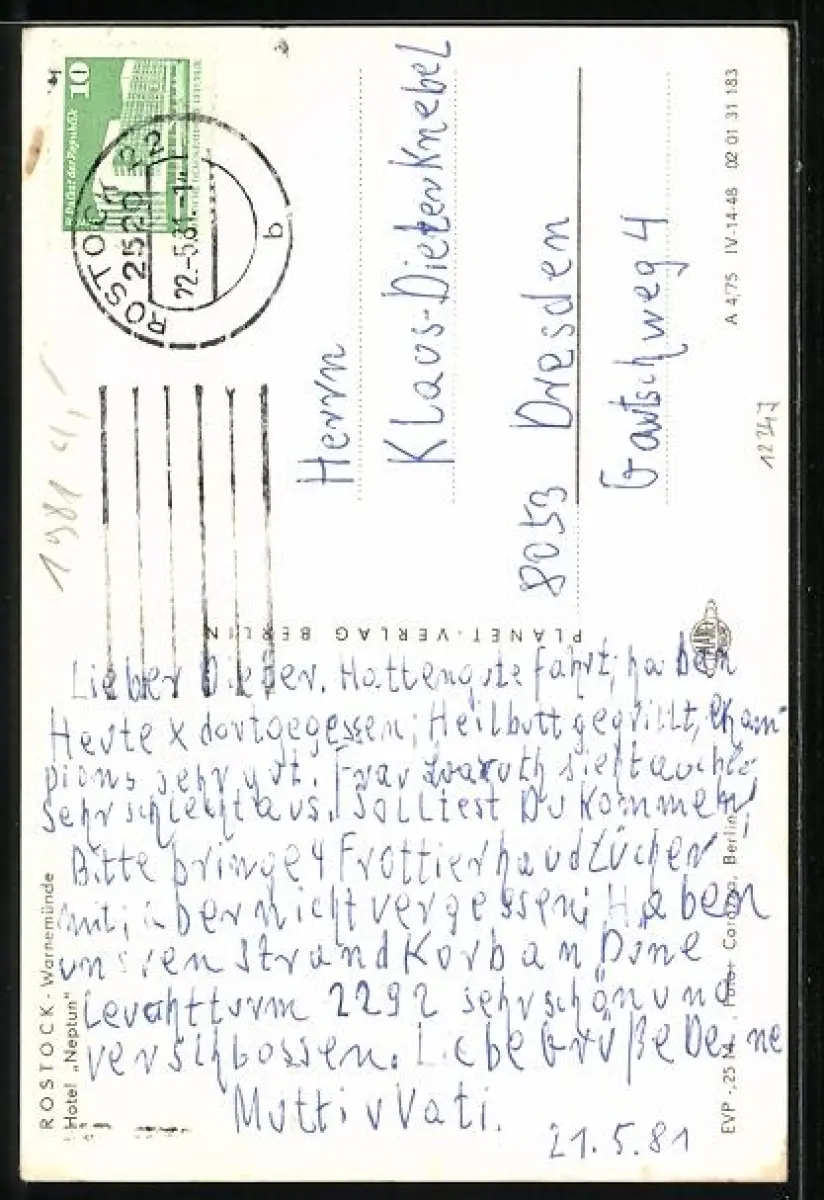 10
Palast der Republik
ROSTOCK 22
2520
22.-5.81-14
b
1981 4,-
Herrn
Klaus-Dieter Knebel
8053 Dresden
Gautschweg 4
A 4/75 IV-14-48 02 01 31 183
12343
PLANET-VERLAG BERLIN
Lieber Dieter. Hatten gute fahrt; haben
Heute x dort gegessen; Heilbutt gegrillt, cham-
pions sehr gut. Frau sieht auch
sehr schlecht aus. Solltest Du kommen,
Bitte bringe 4 Frottierhandtücher
mit; aber nicht vergessen; Haben
unsren Strandkorb an Düne
Leuchtturm 2292 sehr schön und
verschlossen. Liebe Grüße Deine
Mutti u Vati.
21.5.81
ROSTOCK - Warnemünde
Hotel „Neptun"
EVP -,25 M Foto: Berlin